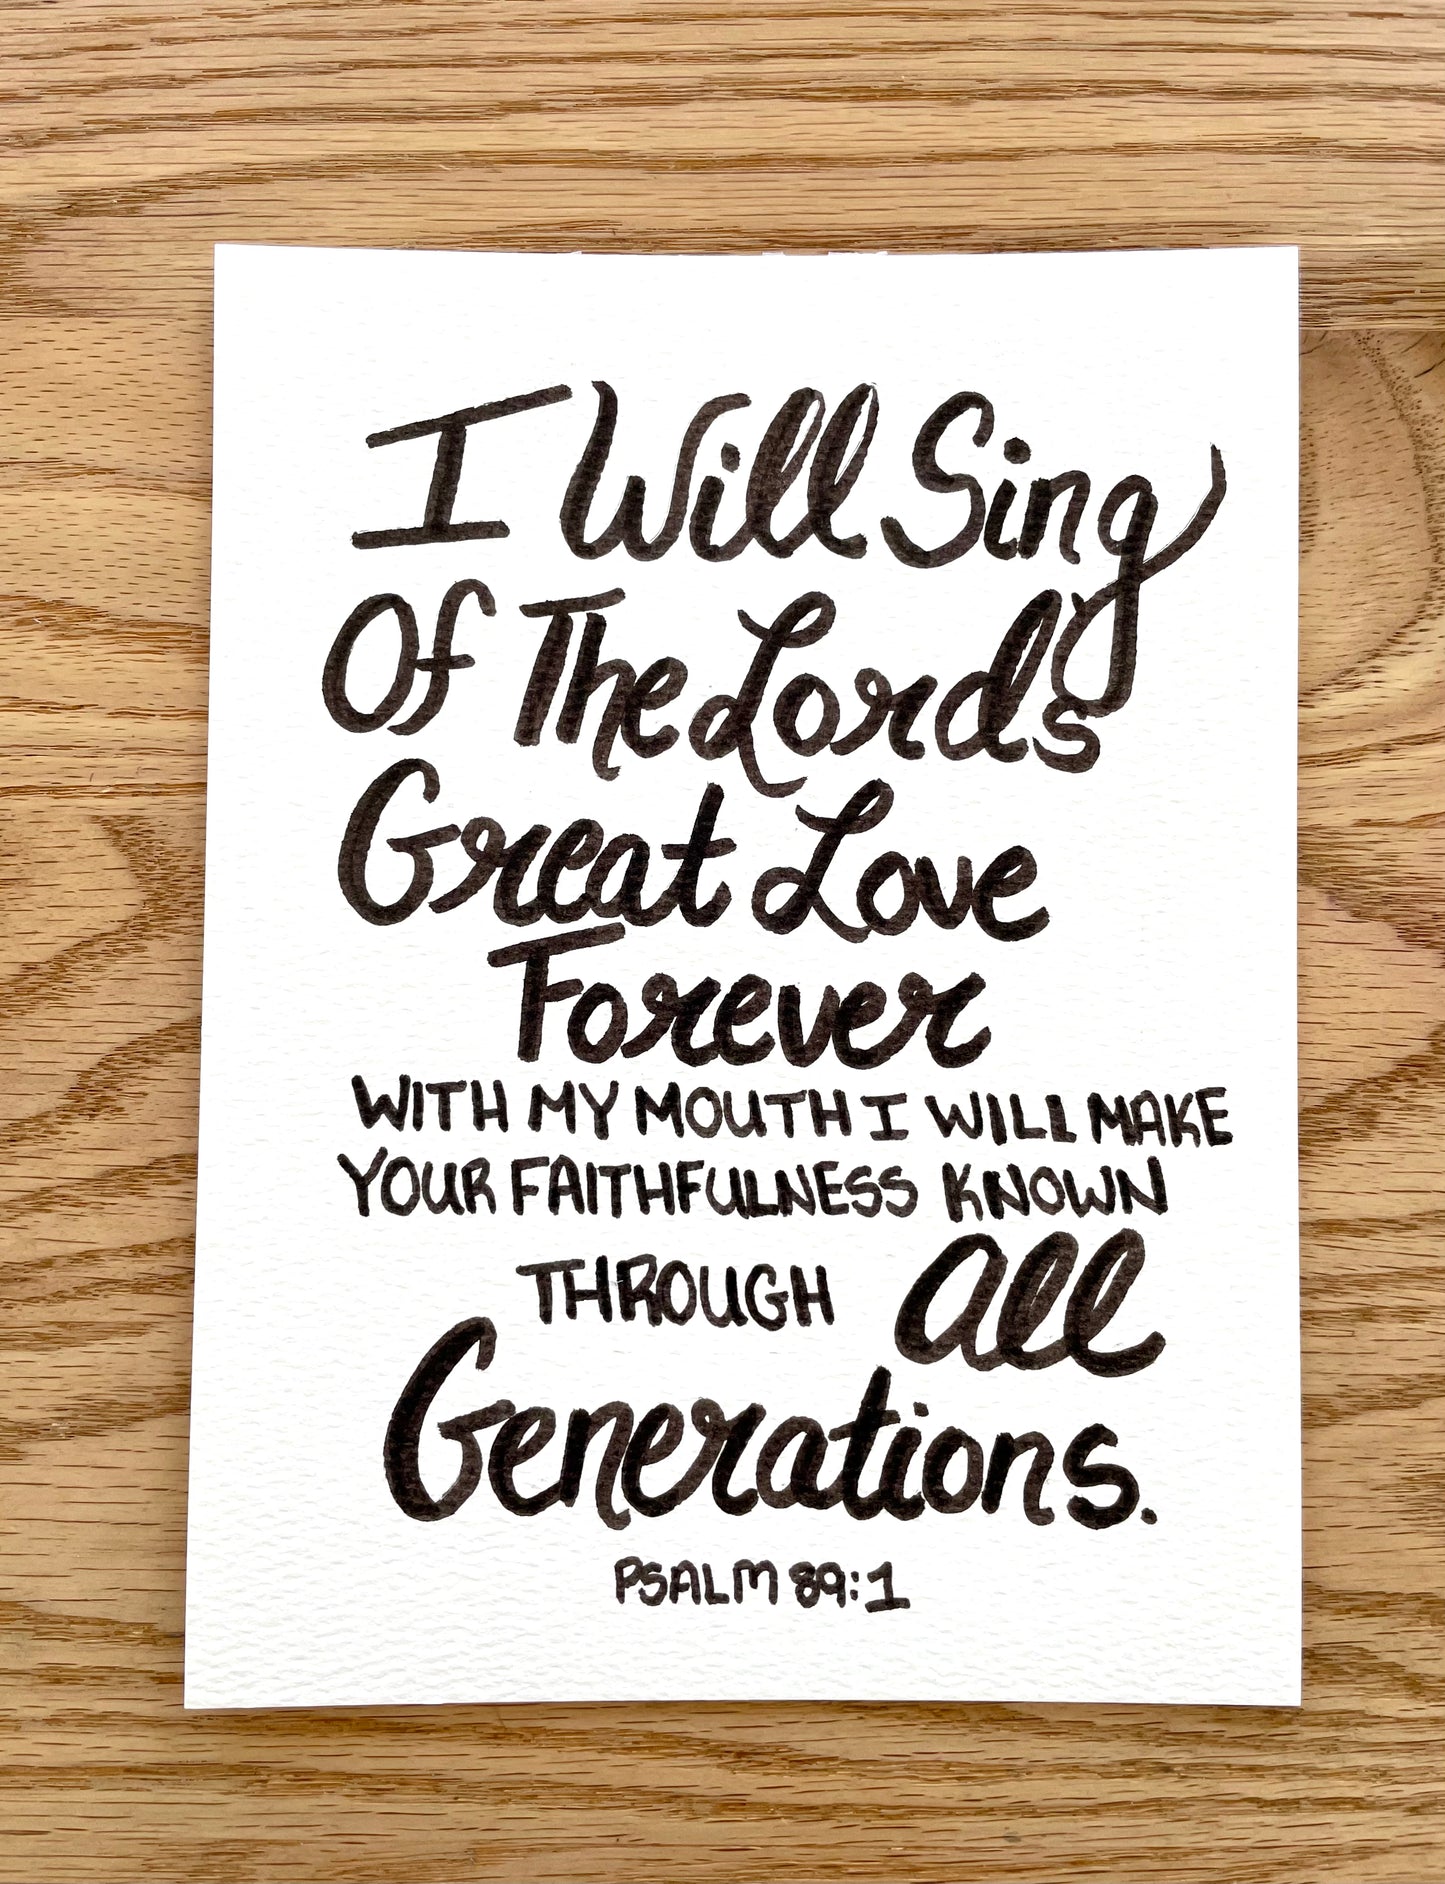 I Will Sing
Of The Lord's
Great Love
Forever
WITH MY MOUTH I WILL MAKE
YOUR FAITHFULNESS KNOWN
THROUGH all
Generations.
PSALM 89:1